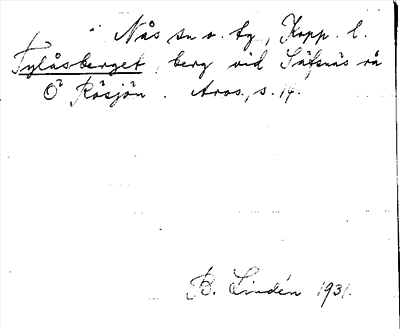 Nås sn o. by, Kopp. l.
Tylåsberget, berg vid Säfsnäs rå
Ö Rösjön. Aros., s. 14.
B. Lindén 1931.